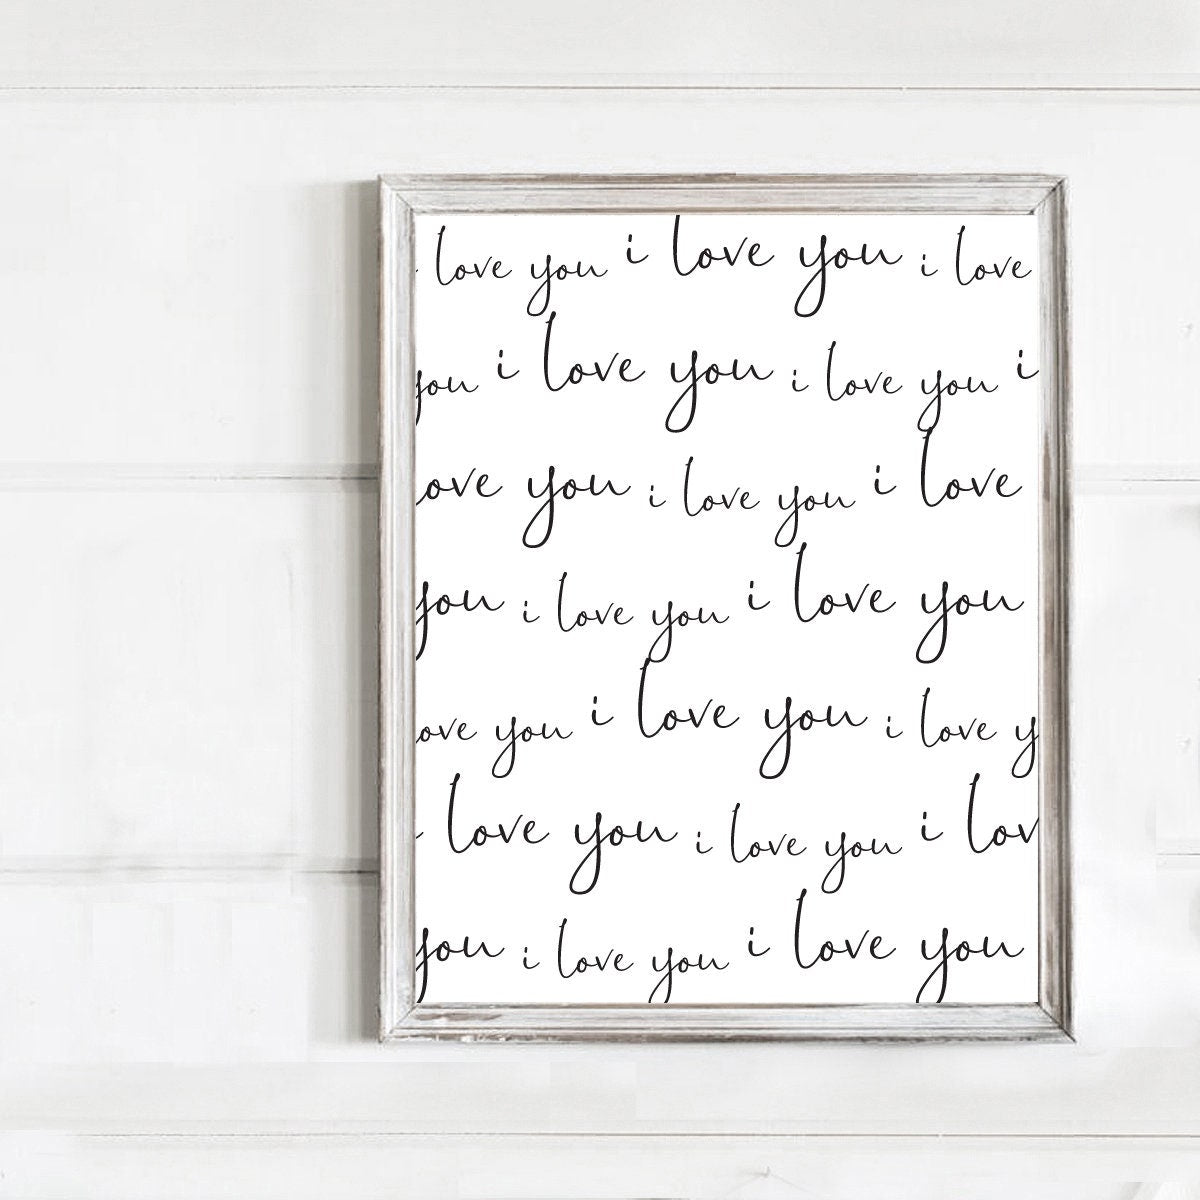 love you i love you i love
you i love you i love you i
ove you i love you i love
you i love you i love you
ove you i love you i love y
love you i love you i lov
you i love you i love you